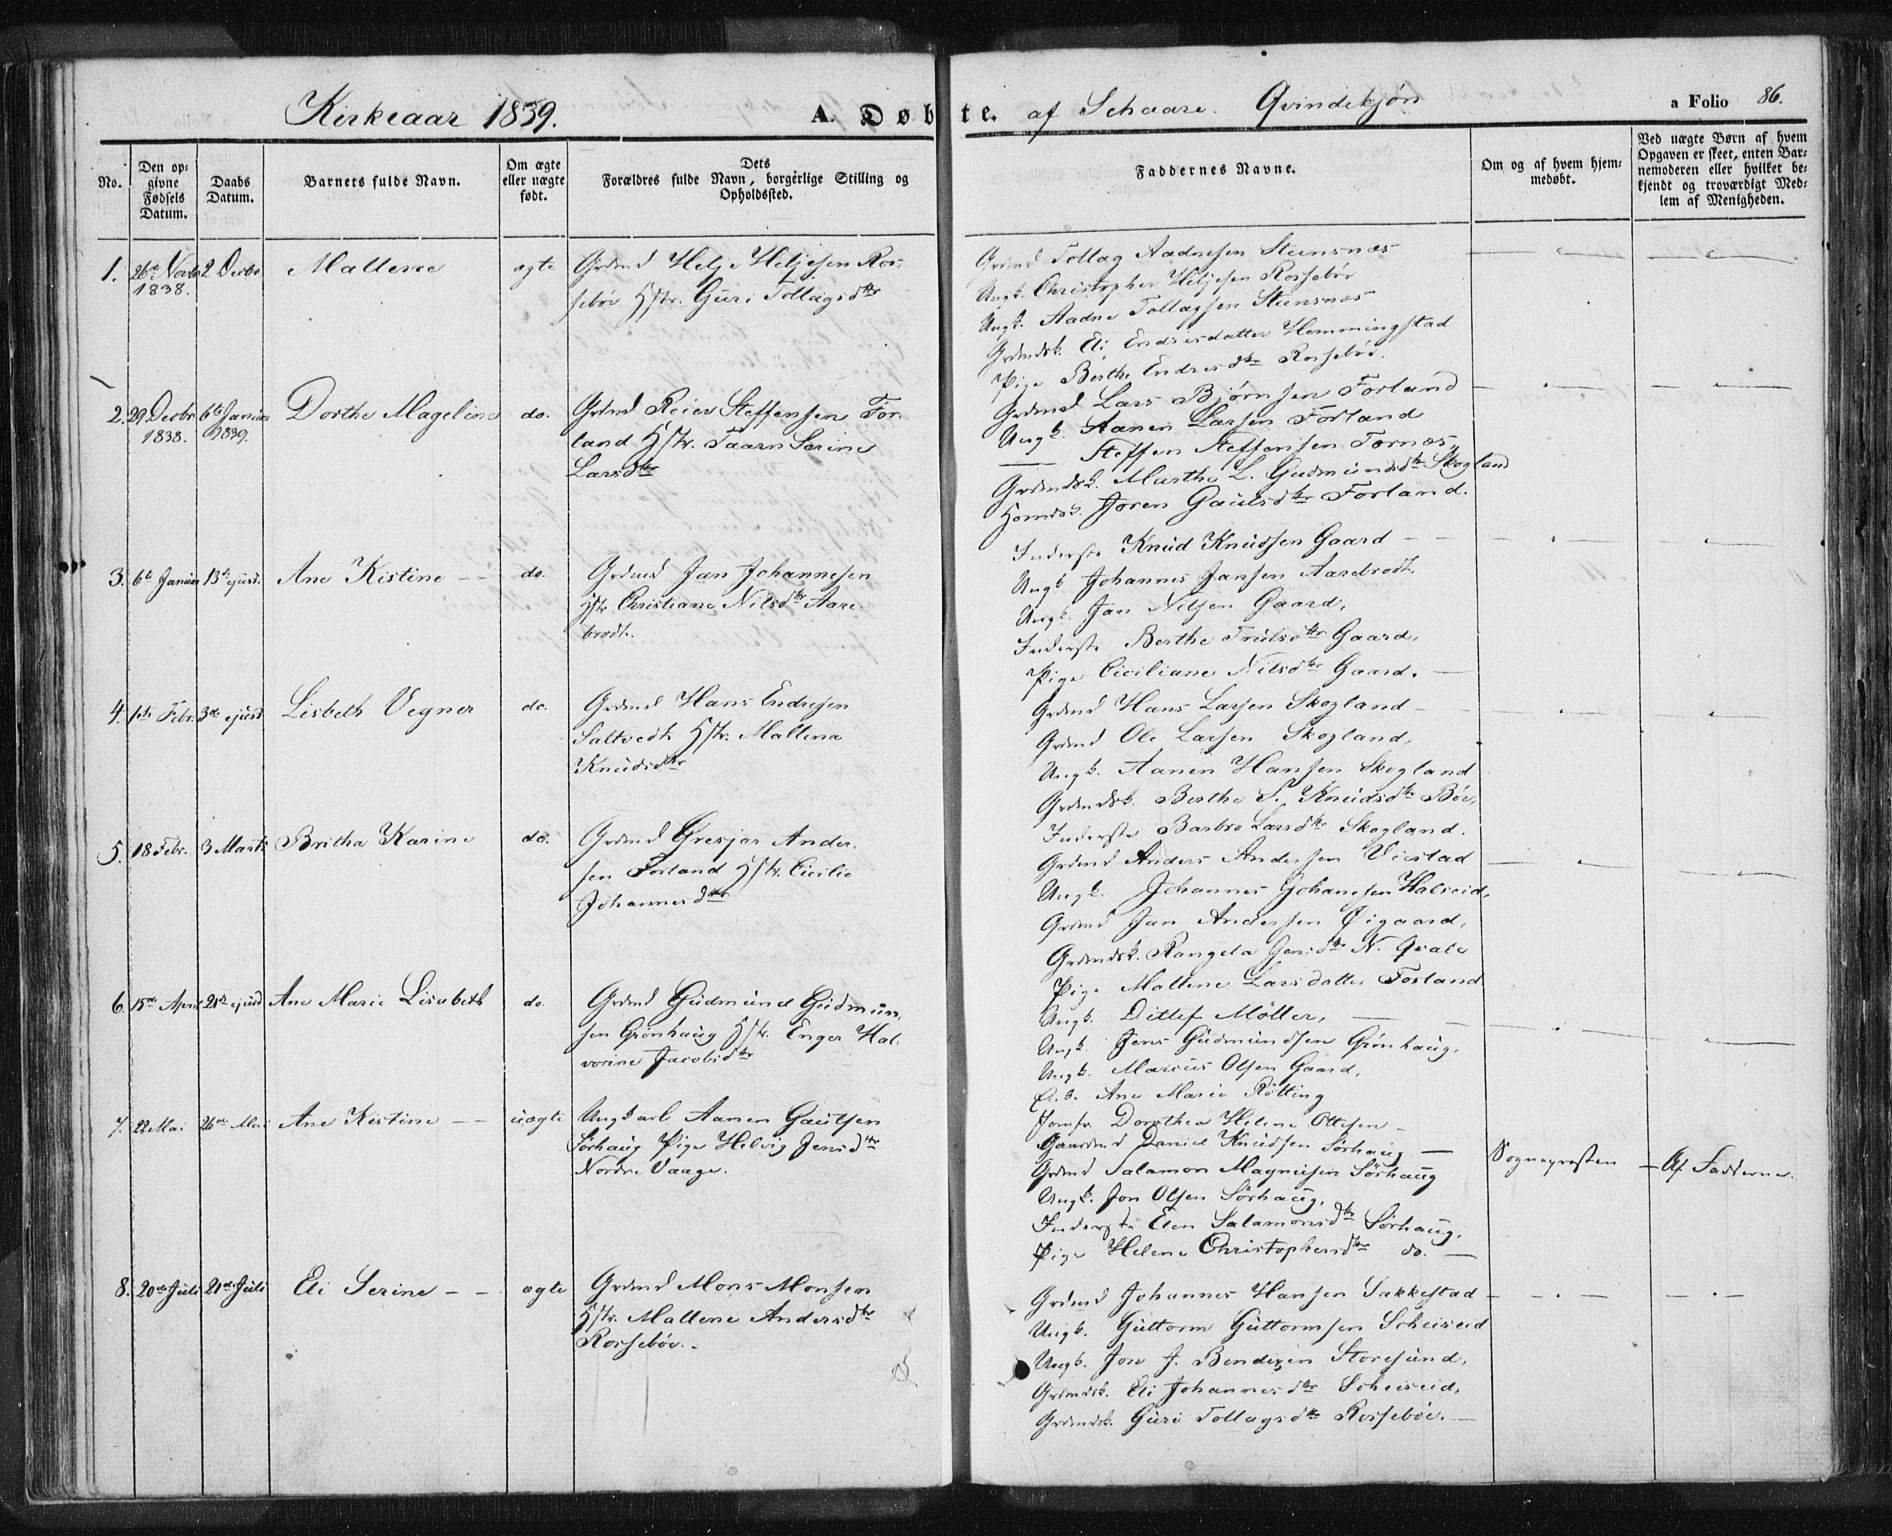 Kirkeaar 1839. A. Døbte. af Schaare. Qvindekjøn a Folio 86.
No.
Den opgivne Fødsels Datum.
Daabs Datum.
Barnets fulde Navn.
Om ægte eller uægte født.
Dets Forældres fulde Navn, borgerlige Stilling og Opholdssted.
Faddernes Navne.
Om og af hvem hjemmedøbt.
Ved uægte Børn af hvem Opgaven er skeet, enten Barnemoderen eller hvilket bekjendt og troværdigt Medlem af Menigheden.
1. 26de Novbr 1838. 2 Decbr Mallene ægte
Grdmd Helje Heljesen Ros-
sebøe Hstr. Guri Tollagsdtr
Grdmd Tollag Aadnesen Steensnæs
Ungk. Christopher Heljesen Rossebøe
Ungk. Aadne Tollagsen Steensnæs
Grdmdsk. Eli Endresdatter Hemmingstad
Pige Berthe Endresdtr Rossebøe.
2. 29 Decbr 1838. 6te Januar 1839. Dorthe Mageline do.
Grdmd Reier Steffensen For-
land Hstr. Taarn Serine
Larsdtr
Grdmd Lars Bjørnsen Forland
Ungk. Aanen Larsen Forland
— Steffen Steffensen Tornæs,
Grdmdsk. Marthe L. Gudmundsdtr Skogland
Hsmdsk. Joren Gautsdtr Forland.
3. 6te Januar 13de ejusd. Ane Kistine — do.
Grdmd Jan Johannesen
Hstr Christiane Nilsdtr Aare-
brodt.
Inderste Knud Knudsen Gaard —
Ungk Johannes Jansen Aarebrodt.
Ungk. Jan Nilsen Gaard,
Inderste Berthe Trulsdtr Gaard,
Pige Ciciliane Nilsdtr Gaard. —
4. 1ste Febr. 3de ejusd Lisbeth Vegner do.
Grdmd Hans Endresen
Saltvedt Hstr. Mallena
Knudsdtr
Grdmd Hans Larsen Skogland —
Grdmd Ole Larsen Skogland,
Ungk. Aanen Hansen Skogland
Grdmdsk. Berthe S. Knudsdtr Bøe,
Inderste Barbro Larsdtr Skogland.
5. 18 Febr. 3 Marts Britha Karine do.
Grdmd Gresjar Ander-
sen Forland Hstr. Cicilie
Johannesdtr
Grdmd Anders Andersen Vistad
Ungk. Johannes Johanesen Halseid,
Grdmd Jan Andersen Øigaard,
Grdmdsk. Rangela Jensdtr N. Qvale
Pige Mallene Larsdatter Forland
6. 15de April 21de ejusd Ane Marie Lisabeth do.
Grdmd Gudmund Gudmun-
sen Grønhaug Hstr. Enger Hal-
vorine Jacobsdtr
Ungk. Ditlef Møller, —
Ungk. Jens Gudmundsen Grønhaug,
Ungk. Marcus Olsen Gaard,
Ane Marie Røtting
Jomfr. Dorothea Helene Ottesen —
7. 22 Mai 26de Mai Ane Kistine — uægte
Ungkarl Aanen Gautsen
Sørhaug Pige Helvig Jensdtr
Nordre Vaage.
Gaardmd Daniel Knudsen Sørhaug —
Grdmd Salamon Magnesen Sørhaug
Ungk. Jon Olsen Sørhaug,
Inderste Elen Salamonsdtr Sørhaug,
Pige Helene Christophersdtr do. —
Sognepresten — Af Fadderne.
8. 20de Juli 21de Juli Eli Serine — ægte
Grdmd Mons Monsen
Hstr. Mallene Andersdtr
Rossebøe. -
Grdmd Johannes Hansen Sakkestad —
Ungk. Guttorm Guttormsen Scheiseid
Ungk. Jon J. Bendixen Storesund,
Grdmdsk. Eli Johannesdtr Scheiseid,
Grdmdsk. Guri Tollagsdtr Rossebøe. —